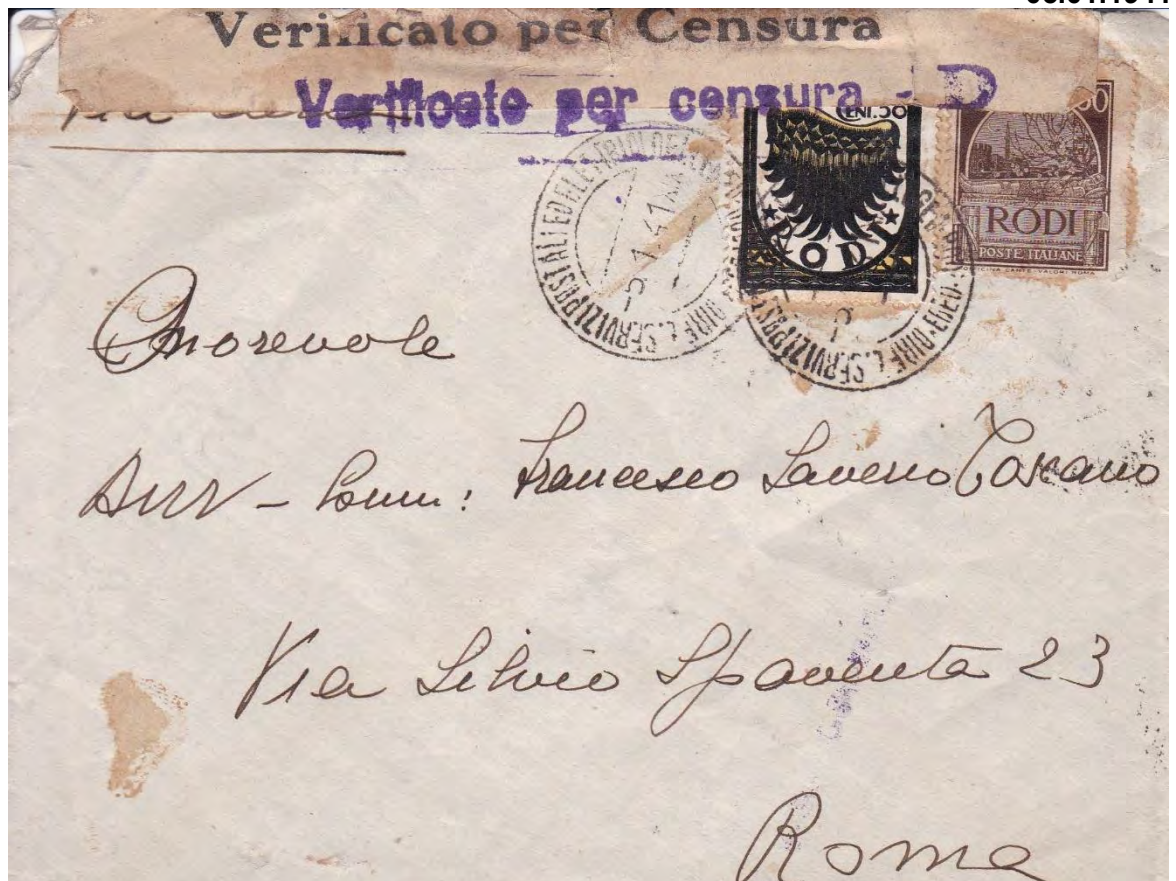 Verificato per Censura
Verificato per censura - P
Via aerea
CENT. 50
RODI
50
RODI
POSTE ITALIANE
Onorevole
Avv - Comm: Francesco Saverio Toscano
Via Silvio Spaventa 23
Roma